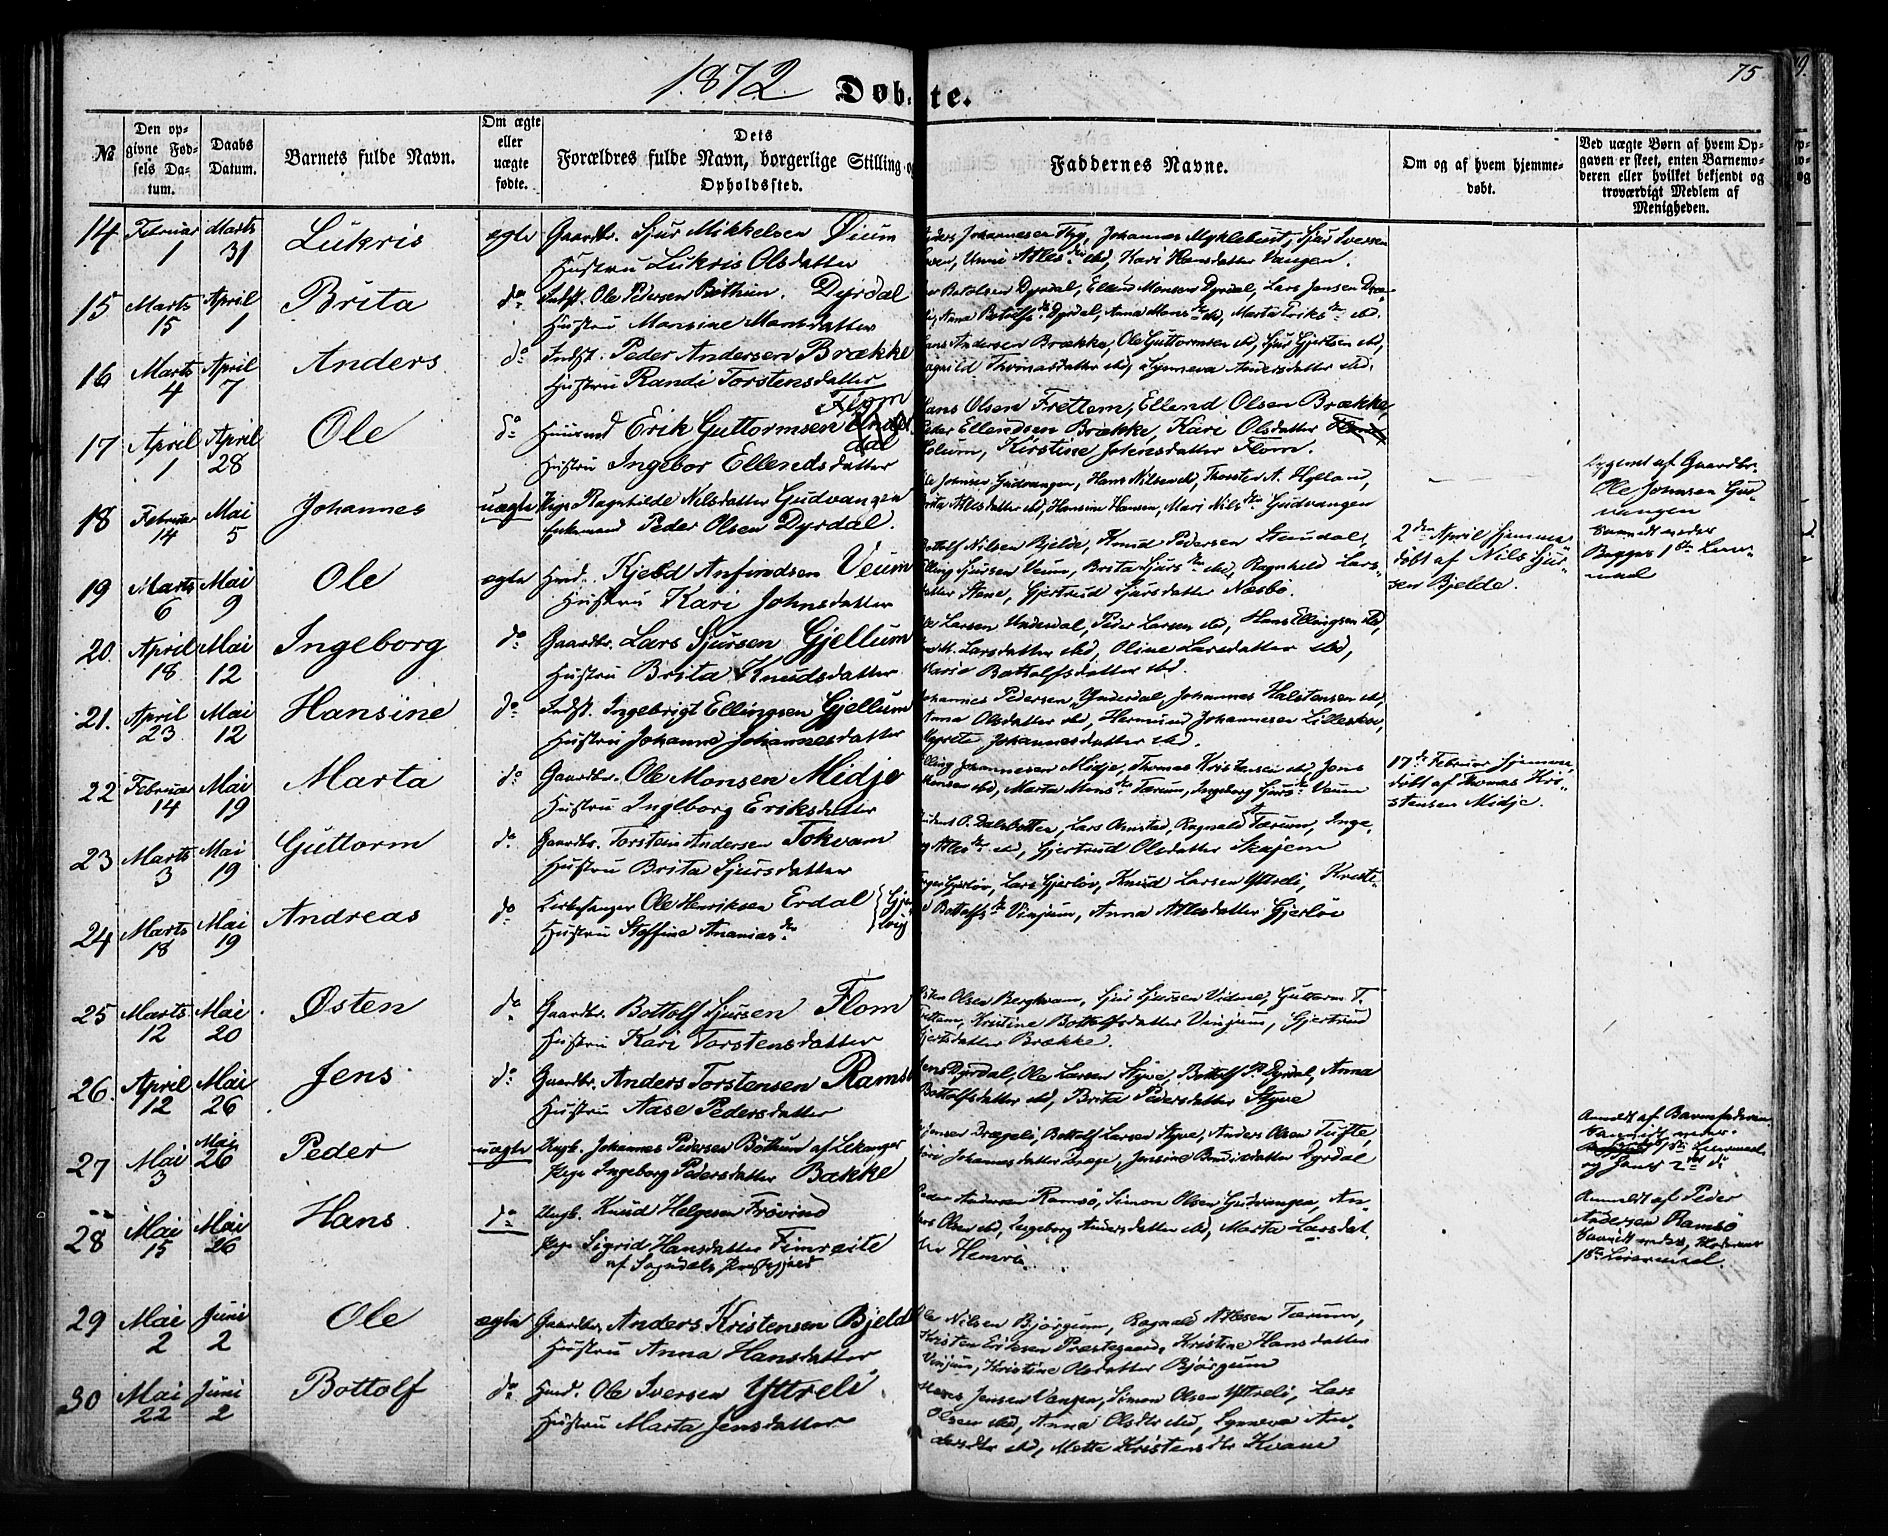 1872. Døbte. 75
№
Den opgivne Fødsels Datum.
Daabs Datum.
Barnets fulde Navn.
Om ægte eller uægte fødte.
Dets Forældres fulde Navn, borgerlige Stilling og Opholdssted.
Faddernes Navne.
Om og af hvem hjemmedøbt.
Ved uægte Børn af hvem Opgaven er skeet, enten Barnemoderen eller hvilket bekjendt og troværdigt Medlem af Menigheden.
14 Februar 1 Marts 31 Lukris ægte Gaardbr. Sjur Mikkelsen Øium
Hustru Lukris Olsdatter
Johannesen Johannes Myklebust, Sjur Iversen
Kari Hansdatter Vangen.
15 Marts 15 April 1 Brita do Indst. Ole Pedersen Bøthun. Dyrdal
Hustru Monsine Monsdatter
Botolfsen Dyrdal, Ellend Monsen Dyrdal, Lars Jensen
Anna Dyrdal, Anna Mons Dr ibd, Marta Eriks Dr ibd.
16 Marts 4 April 7 Anders do Indst. Peder Andersen Brække
Hustru Randi Torstensdatter
Andersen Brække, Ole Guttormsen ibd, Sjur Gjertsen ibd,
Thomasdatter ibd, Synneva Andersdatter ibd.
17 April 1 April 28 Ole do Erik Guttormsen Flom
Hustru Ingebor Ellendsdatter
Olsen Frettem, Ellend Olsen Brække,
Ellendsen Brække, Kari Olsdatter
Holum, Kirstine Johnsdatter Flom.
18 Februar 14 Mai 5 Johannes uægte Pige Ragnhilde Nilsdatter Gudvangen
Enkemand Peder Olsen Dyrdal.
Johnsen Gudvangen, Hans Nilsen ibd, Thorsten A. Hylland,
Atlesdatter ibd, Hansine Hansen, Mari Nils Dr Gudvangen
Opgivet af Gaardbr.
Ole Johnsen Gudvangen
Begges 1ste Leiermaal
19 Marts 6 Mai 9 Ole ægte Kjeld Anfindsen Veum
Hustru Kari Johnsdatter
Bottolf Nilsen Bjelde, Knud Pedersen
Sjursen Veum, Brita Sjurs Dr ibd, Ragnhild Larsdatter
Stene, Gjertrud Sjursdatter Næsbø.
2den April hjemmedøbt af Nils Sjursen Bjelde.
20. April 18 Mai 12 Ingeborg do Gaardbr. Lars Sjursen Gjellum
Hustru Brita Knudsdatter
Larsen Underdal, Peder Larsen ibd, Hans Ellingsen ibd,
Larsdatter ibd, Oline Larsdatter ibd,
Marie Bottolfsdatter ibd.
21. April 23 Mai 12 Hansine do Indst. Ingebrigt Ellingsen Gjellum
Hustru Johanne Johannesdatter
Johannes Pedersen Underdal, Johannes Halstensen ibd,
Anna Olsdatter ibd, Hermund Johannesen
Johannesdatter ibd.
22 Februar 14 Mai 19 Marta do Gaardbr. Ole Monsen Midje
Hustru Ingeborg Eriksdatter
Elling Johannesen Midje, Thomas Kristensen ibd, Jens
Hansen ibd, Marta Mons Dr Tærum, Ingeborg Sjurs Dr Veum
17de Februar hjemmedøbt af Thomas Kristensen Midje.
23 Marts 3 Mai 19 Guttorm do Gaardbr. Torstein Andersen Tokvam
Hustru Brita Sjursdatter
Dalsbotten, Lars Onstad, Ragnald A. Tærum,
Atles Dr ibd, Gjertrud Olsdatter Skajem
24 Marts 18 Mai 19 Andreas do Kirkesanger Ole Henriksen Erdal
Hustru Staffine Ananias Dr
Gjerløv, Lars Gjerløv, Knud Larsen Yttreli,
Bottolfs Dr Vinjum, Anna Atlesdatter Gjerløv
25 Marts 12 Mai 20 Østen do Gaardbr. Bottolf Sjursen Flom
Hustru Kari Torstensdatter
Olsen Bergkvam, Sjur Sjursen Vidme, Guttorm T.
Frettem, Kristine Bottolfsdatter Vinjum, Gjertrud
Gjertsdatter Brække.
26. April 12 Mai 26 Jens do Gaardbr. Anders Torstensen Ramsø
Hustru Aase Pedersdatter
Dyrdal, Ole Larsen Styve, Bottolf P. Dyrdal, Anna
Bottolfsdatter ibd, Brita Pedersdatter Styve
27 Mai 3 Mai 26 Peder uægte Ungk. Johannes Pedersen Bøthun af Lekanger
Pige Ingeborg Pedersdatter Bakke
Jensen Drægeli, Bottolf Larsen Styve, Anders Olsen Tufte,
Johannesdatter Drege, Jensine Dyrdal
Anmeldt af Barnefaderen
1ste Leiermaal
og hans 2det
28 Mai 15 Mai 26 Hans do Ungk. Knud Helgesen Frövind
Pige Sigrid Hansdatter Fimreite
af Sogndals Præstegjeld
Peder Andersen Ramsö, Simon Olsen Gudvangen,
Olsen ibd, Ingeborg Andersdatter ibd, Marta Larsdatter
Hemri.
Anmeldt af Peder
Andersen Ramsö
Moderens
1ste Leiermaal.
29 Mai 2 Juni 2 Ole ægte Gaardbr. Anders Kristensen Bjelde
Hustru Anna Hansdatter
Ole Nilsen Bjørgum, Ragnald Atlesen Tærum,
Kristen Eriksen Præstegaard, Kristine Hansdatter
Vinjum, Kristine Olsdatter Bjørgum
30 Mai 22 Juni 2 Bottolf do Ole Iversen Yttreli.
Hustru Marta Jensdatter
Jensen Vangen, Simon Olsen Yttreli, Lars
Olsen ibd, Anna Olsdtr ibd, Synneva Andersdtr
ibd, Mette Kristensdtr Kvam